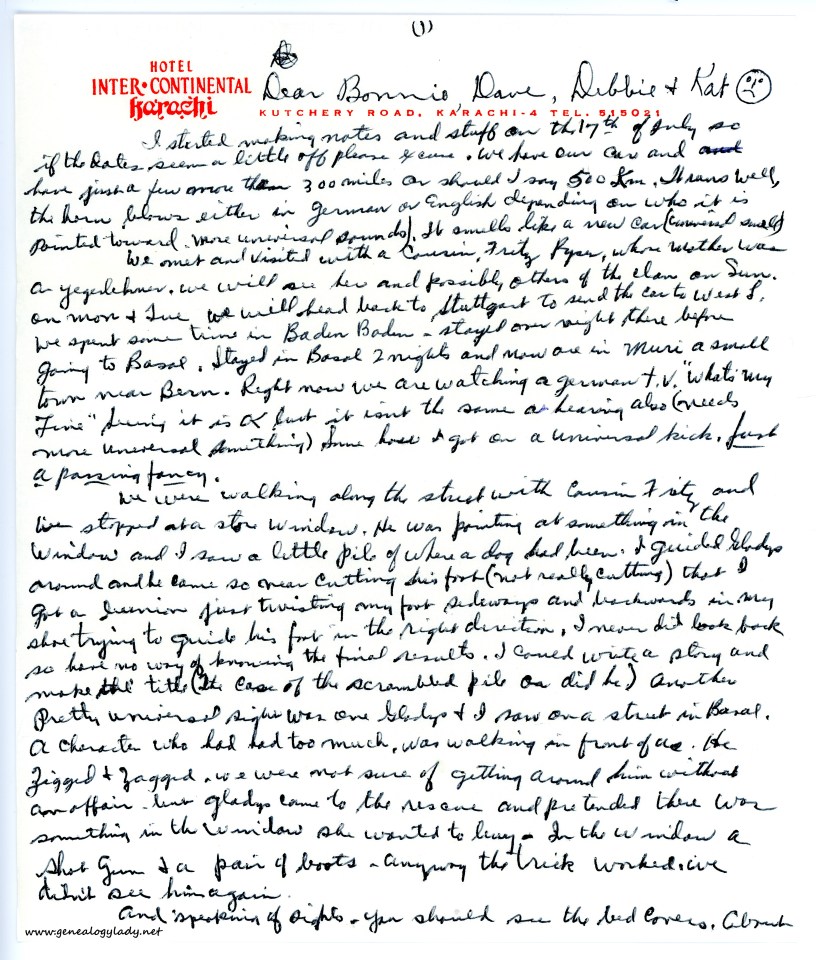 (1)
HOTEL
INTER•CONTINENTAL
Karachi
Dear Bonnie, Dave, Debbie & Kat
KUTCHERY ROAD, KARACHI-4 TEL. 515021
I started making notes and stuff on the 17th of July so
if the dates seem a little off please excuse. We have our car and and
have just a few more than 300 miles or should I say 500 Km. It runs well,
the horn blows either in German or English depending on who it is
pointed toward. more universal sounds). It smells like a new car (universal smell)
We met and visited with a Cousin, Fritz Ryser, whose mother was
a yegerlehner. we will see her and possibly others of the clan on Sun.
on mon & Tue we will head back to Stuttgart to send the car to West S.
We spent some time in Baden Baden - stayed over night there before
going to Basal. Stayed in Basal 2 nights and now are in Muri a small
town near Bern. Right now we are watching a german T.V. "What's my
Line" Seeing it is OK but it isn't the same as hearing also (needs
more universal something) Some how I got on a universal kick. Just
a passing fancy.
We were walking along the street with Cousin Fritz and
we stopped at a store window. He was pointing at something in the
window and I saw a little pile of where a dog had been. I guided Gladys
around and he came so near cutting his foot (not really cutting) that I
got a bunion just twisting my foot sideways and backwards in my
shoe trying to guide his foot in the right direction. I never did look back
so have no way of knowing the final results. I could write a story and
make the title (The case of the scrambled pile or did he) Another
pretty universal sight was one Gladys & I saw on a street in Basal.
A character who had had too much, was walking in front of us. He
Zigged & Zagged. we were not sure of getting around him without
an affair - but gladys came to the rescue and pretended there was
something in the window she wanted to buy - In the window a
shot Gun & a pair of boots - anyway the trick worked. we
didn't see him again.
And speaking of sights - you should see the bed covers. About
www.genealogylady.net